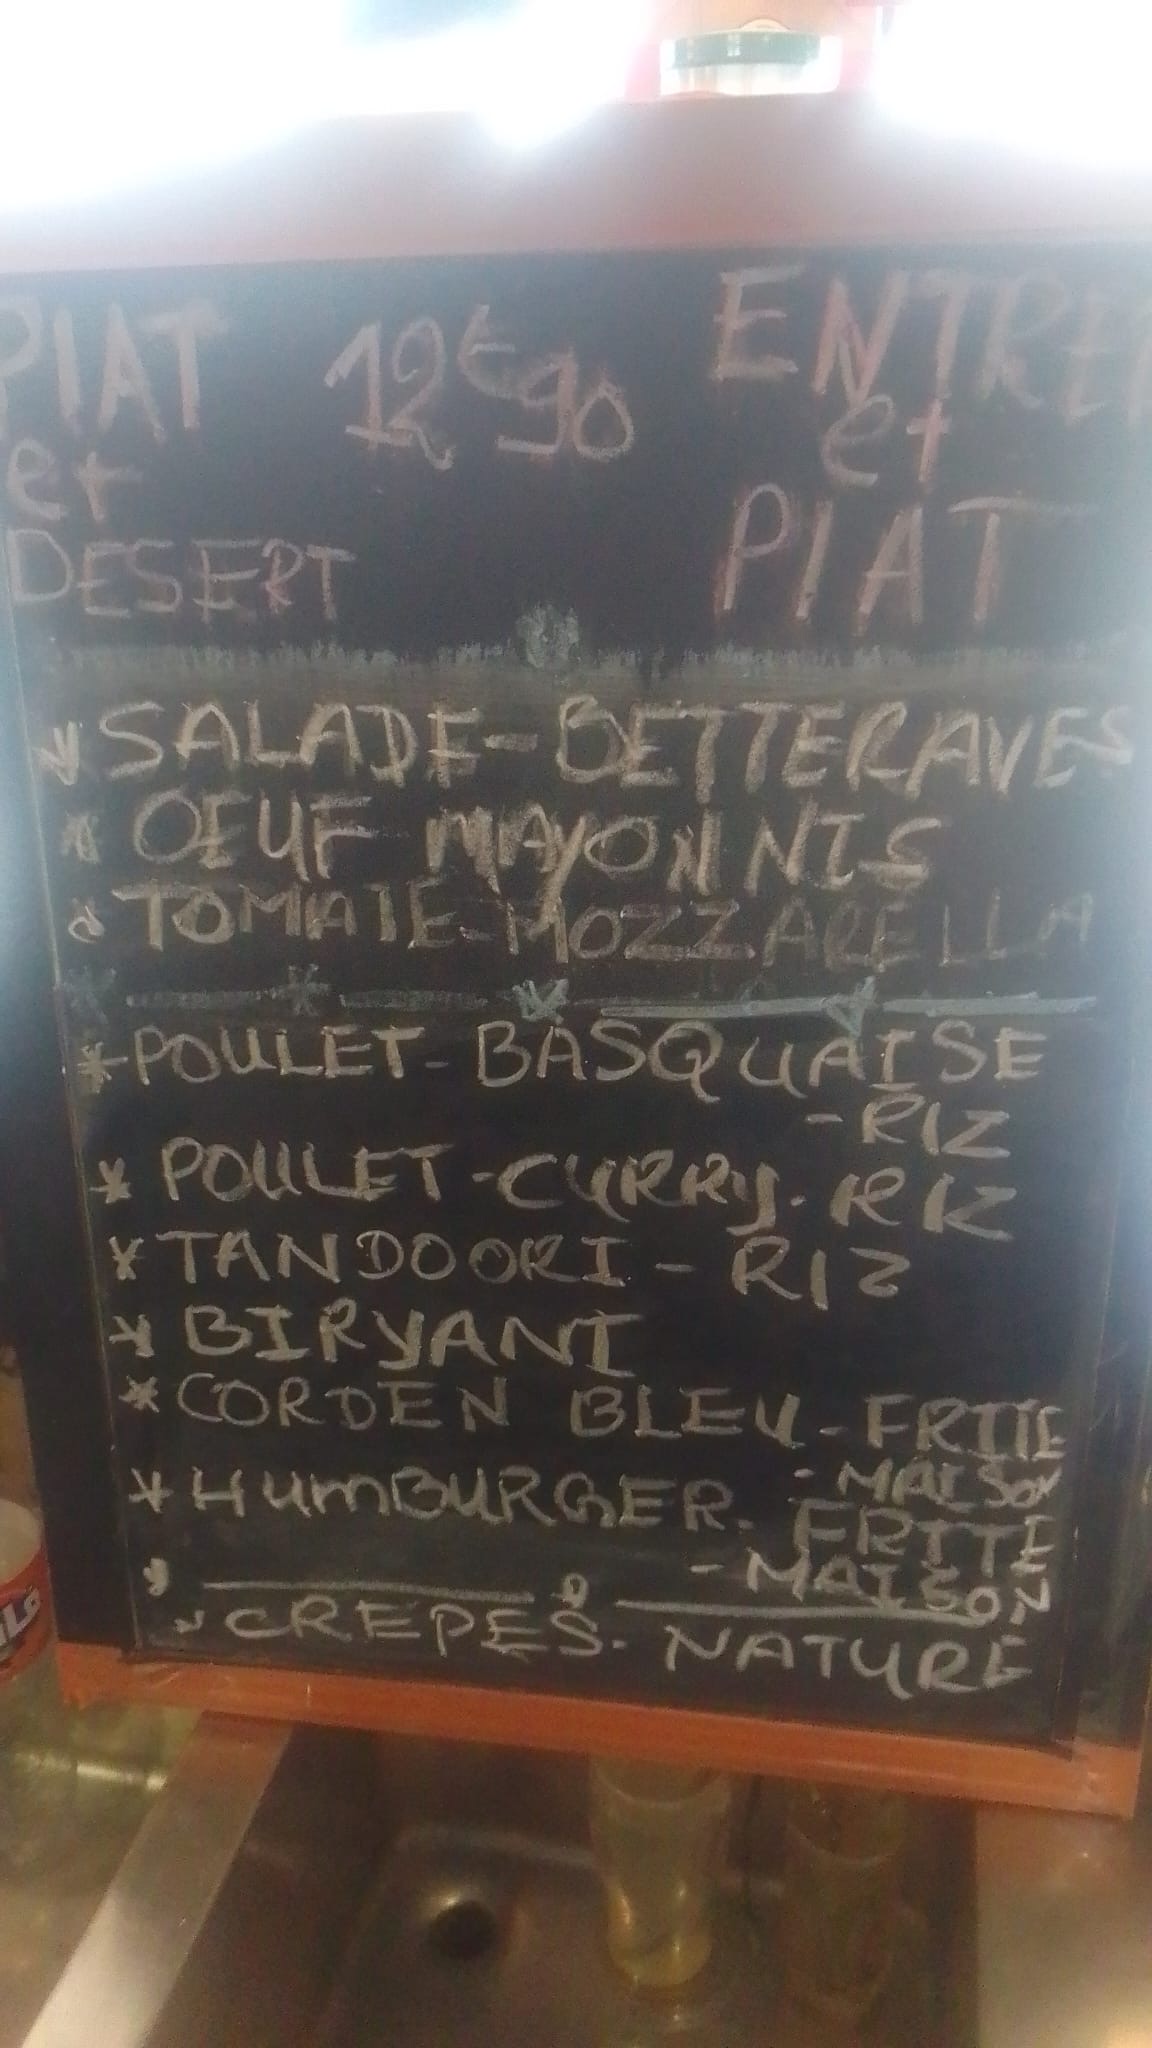 PlAT 12€90 ENTREE
et et
DESERT PlAT
SALADE-BETTERAVES
OEUF MAYONNIS
TOMATE-MOZZARELLA
POULET-BASQUAISE
-RIZ
POULET-CURRY-RIZ
TANDOORI-RIZ
BIRYANI
CORDEN BLEU-FRITE
-MAISON
HUMBURGER-FRITE
-MAISON
CREPES-NATURE